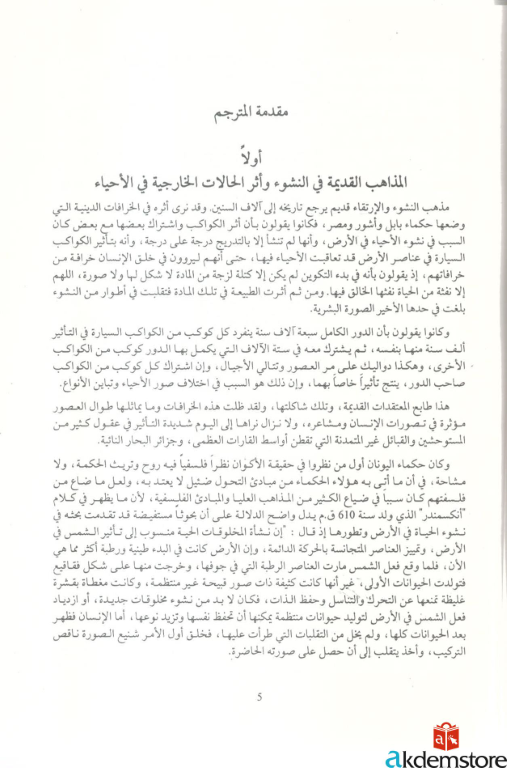 مقدمة المترجم
أولاً
المذاهب القديمة في النشوء وأثر الحالات الخارجية في الأحياء
مذهب النشوء والإرتقاء قديم يرجع تاريخه إلى آلاف السنين. وقد نرى أثره في الخرافات الدينية التي
وضعها حكماء بابل وأشور ومصر، فكانوا يقولون بأن أثر الكواكب واشتراك بعضها مع بعض كان
السبب في نشوء الأحياء في الأرض، وأنها لم تنشأ إلا بالتدريج درجة على درجة، وأنه بتأثير الكواكب
السيارة في عناصر الأرض قد تعاقبت الأحياء فيها، حتى أنهم ليروون في خلق الإنسان خرافة من
خرافاتهم، إذ يقولون بأنه في بدء التكوين لم يكن إلا كتلة لزجة من المادة لا شكل لها ولا صورة، اللهم
إلا نفثة من الحياة نفثها الخالق فيها. ومن ثم أثرت الطبيعة في تلك المادة فتقلبت في أطوار من النشوء
بلغت في حدها الأخير الصورة البشرية.
وكانوا يقولون بأن الدور الكامل سبعة آلاف سنة ينفرد كل كوكب من الكواكب السيارة في التأثير
ألف سنة منها بنفسه، ثم يشترك معه في ستة الآلاف التي يكمل بها الدور كوكب من الكواكب
الأخرى، وهكذا دواليك على مر العصور وتتالي الأجيال، وإن اشتراك كل كوكب من الكواكب
صاحب الدور، ينتج تأثيراً خاصاً بهما، وإن ذلك هو السبب في اختلاف صور الأحياء وتباين الأنواع.
هذا طابع المعتقدات القديمة، وتلك شاكلتها، ولقد ظلت هذه الخرافات وما يماثلها طوال العصور
مؤثرة في تصورات الإنسان ومشاعره، ولا نزال نراها إلى اليوم شديدة التأثير في عقول كثير من
المستوحشين والقبائل غير المتمدنة التي تقطن أواسط القارات العظمى، وجزائر البحار النائية.
وكان حكماء اليونان أول من نظروا في حقيقة الأكوان نظراً فلسفياً فيه روح وتريث الحكمة، ولا
مشاحة، في أن ما أتى به هؤلاء الحكماء من مبادئ التحول ضئيل لا يعتد به، ولعل ما ضاع من
فلسفتهم كان سبباً في ضياع الكثير من المذاهب العليا والمبادئ الفلسفية، لأن ما يظهر في كلام
"أنكسمندر" الذي ولد سنة 610 ق.م يدل واضح الدلالة على أن بحوثاً مستفيضة قد تقدمت بحثه في
نشوء الحياة في الأرض وتطورها إذ قال : "إن نشأة المخلوقات الحية منسوب إلى تأثير الشمس في
الأرض، وتمييز العناصر المتجانسة بالحركة الدائمة، وإن الأرض كانت في البدء طينية ورطبة أكثر مما هي
الآن، فلما وقع فعل الشمس مارت العناصر الرطبة التي في جوفها، وخرجت منها على شكل فقاقيع
فتولدت الحيوانات الأولى، غير أنها كانت كثيفة ذات صور قبيحة غير منتظمة، وكانت مغطاة بقشرة
غليظة تمنعها عن التحرك والتناسل وحفظ الذات، فكان لا بد من نشوء مخلوقات جديدة، أو ازدياد
فعل الشمس في الأرض لتوليد حيوانات منتظمة يمكنها أن تحفظ نفسها وتزيد نوعها، أما الإنسان فظهر
بعد الحيوانات كلها، ولم يخل من التقلبات التي طرأت عليها، فخلق أول الأمر شنيع الصورة ناقص
التركيب، وأخذ يتقلب إلى أن حصل على صورته الحاضرة.
5
akdemstore